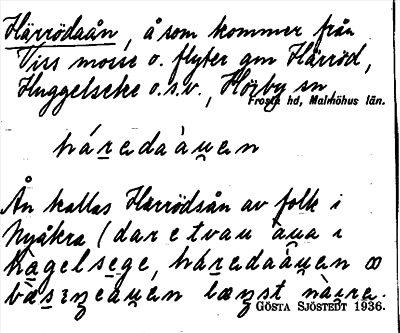 Härrödaån, å som kommer från
Viss mosse o. flyter gm Härröd,
Huggelseke o.s.v., Hörby sn,
Frosta hd, Malmöhus län.
háredaàu̯en
Ån kallas Härrödsån av folk i
Nyåkra (dar e tvau àu̯a i
hagelsege, háredaàu̯en
læŋst nàere.
GÖSTA SJÖSTEDT 1936.